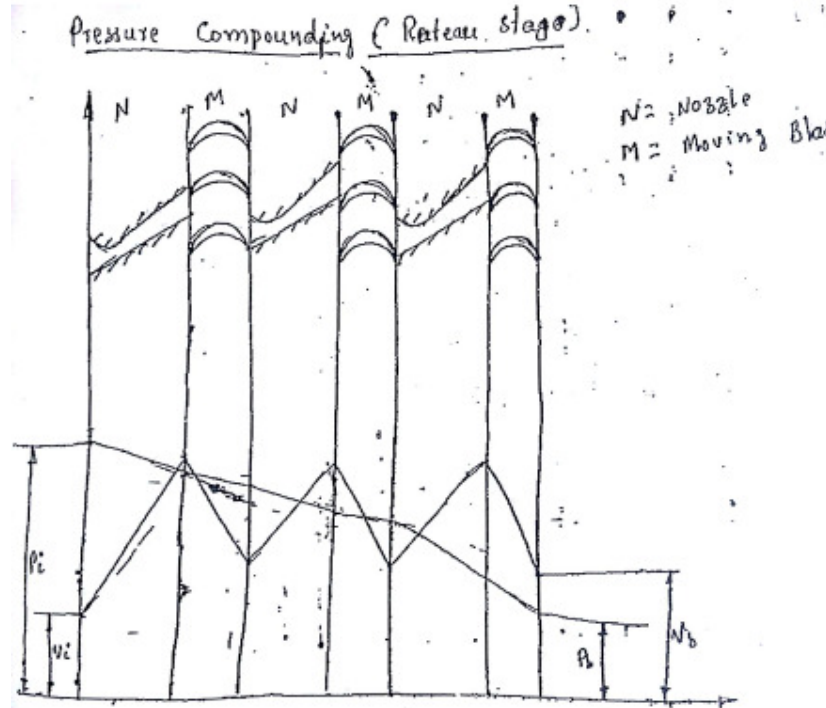 Pressure Compounding (Rateau Stage).
N M N M N M
N = Nozzle
M = Moving Bla
Pi
Vi